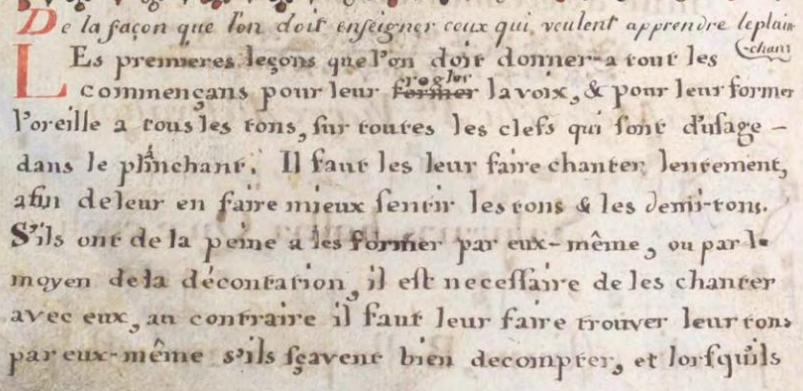 De la façon que l'on doit enseigner ceux qui veulent apprendre le plain-
chant
LEs premieres leçons que l'on doit donner a tout les
commençans pour leur former regler la voix, & pour leur former
l'oreille a tous les tons, sur toutes les clefs qui sont d'usage -
dans le plainchant. Il faut les leur faire chanter lentement,
afin de leur en faire mieux sentir les tons & les demi-tons.
S'ils ont de la peine a les former par eux-même, ou par le
moyen de la décontation, il est necessaire de les chanter
avec eux, au contraire il faut leur faire trouver leur tons
par eux-même s'ils sçavent bien decompter, et lorsqu'ils